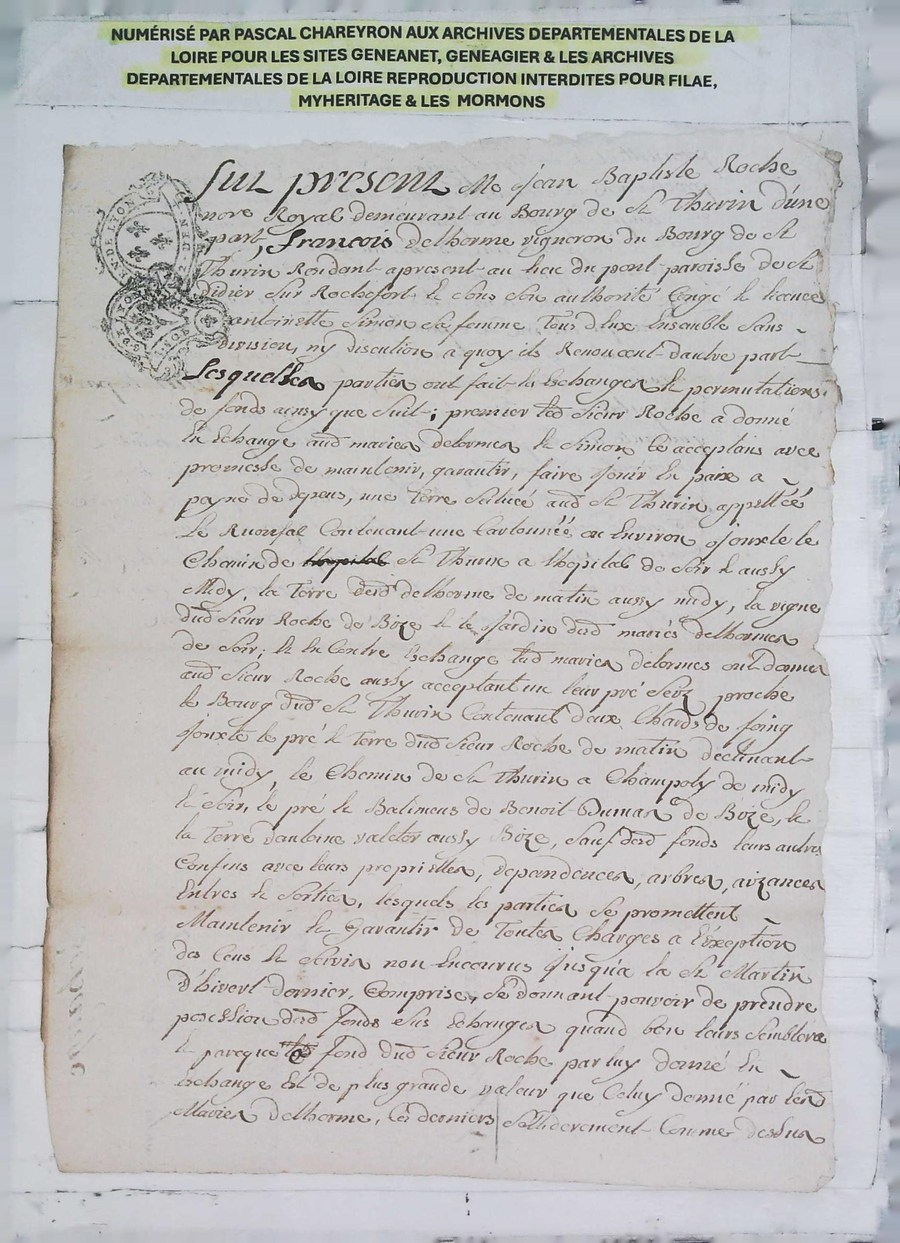 NUMÉRISÉ PAR PASCAL CHAREYRON AUX ARCHIVES DEPARTEMENTALES DE LA
LOIRE POUR LES SITES GENEANET, GENEAGIER & LES ARCHIVES
DEPARTEMENTALES DE LA LOIRE REPRODUCTION INTERDITES POUR FILAE,
MYHERITAGE & LES MORMONS
Me Jean Baptiste Roche
nore Royal demeurant au Bourg de St Thurin d'une
part, François delhorme vigneron du Bourg de St
Thurin Residant apresent au lieu du pont paroisse de St
didier sur Rochefort & sous son authorité Congé & licence
antoinette Simon sa femme tous deux Ensemble sans
division, ny discution a quoy ils Renoncent dautre part
Lesquelles parties ont fait les Eschanges & permutations
de fonds aussy que suit; premier led Sieur Roche a donné
En Echange aud maries delormes & Simon acceptans avec
promesse de maintenir, garantir, faire jouir En paix a
payne de depens, une terre scituée aud St Thurin appellée
Le contenant une Cartonnée ou Environ jouxte le
Chemin de St Thurin a lhopital de soir & aussy
Midy, la terre desd delhorme de matin aussy midy, la vigne
dud Sieur Roche de Bize & le Jardin desd mariés delhormes
de soir; & En Contre Eschange led maries delormes ont donné
aud Sieur Roche aussy acceptant un leur pré sciz proche
le Bourg dud St Thurin Contenant deux Chards de foing
jouxte le pré & terre dud Sieur Roche de matin declinant
au midy le Chemin de St Thurin a Champoly de midy
& soir, le pré & Batimens de Benoit Dumas de Bize, &
la terre dantoine valeter aussy Bize, sauf desd fonds leurs autres
Confins avec leurs propriettes, dependences, arbres, aizances
Entrées & sorties, lesquels les parties se promettent
Maintenir & Garantir de Toutes Charges a l'Exeption
des Cens & servis non Encourus jusqu'a la St Martin
d'hivert dernier, Comprise, se donnant pouvoir de prendre
posession desd fonds sus Echanges quand bon leurs semblera
& parceque le fond dud Sieur Roche par luy donné En
Echange Est de plus grande valeur que Celuy donné par lesd
Maries delhorme, Ces derniers solliderement Comme dessus